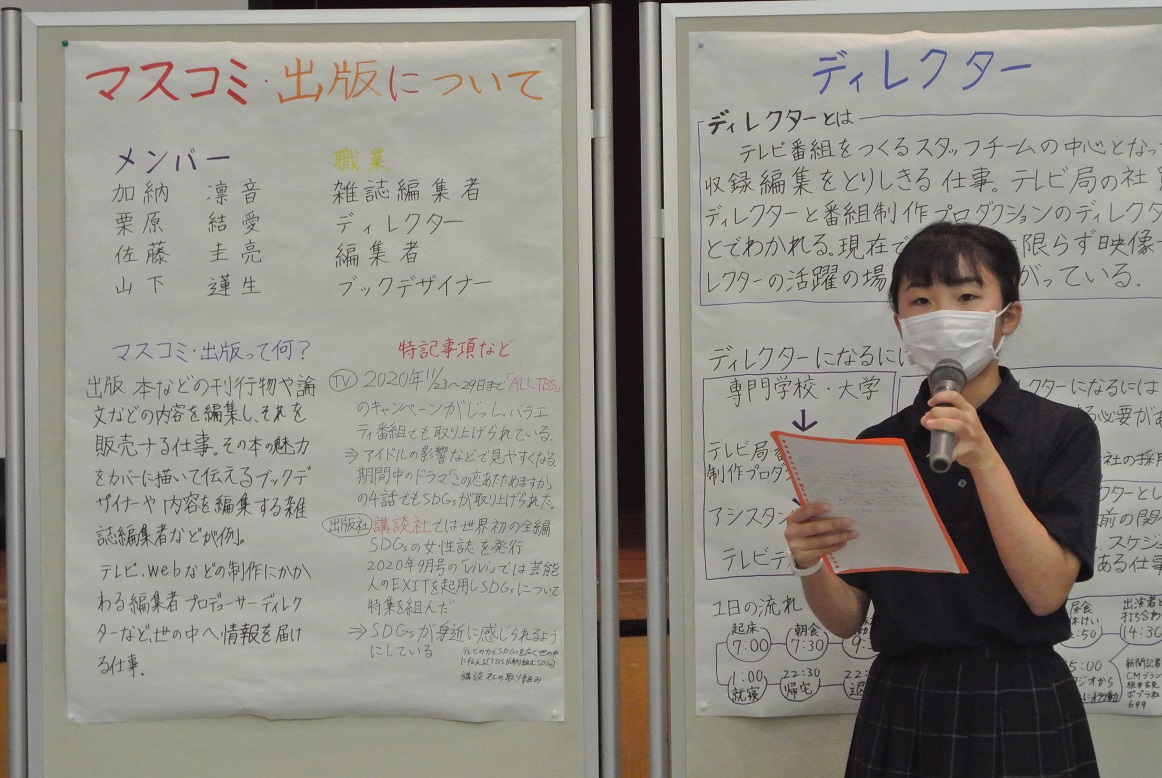 マスコミ・出版について
メンバー 職業
加納 凛音 雑誌編集者
栗原 結愛 ディレクター
佐藤 圭亮 編集者
山下 蓮生 ブックデザイナー
マスコミ・出版って何？
出版 本などの刊行物や論
文などの内容を編集し、それを
販売する仕事。その本の魅力
をカバーに描いて伝えるブックデ
ザイナーや内容を編集する雑
誌編集者などが例。
テレビ、webなどの制作にかか
わる編集者プロデューサーディレク
ターなど、世の中へ情報を届け
る仕事。
特記事項など
TV 2020年11/23〜29日まで「ALL TBS」
のキャンペーンがじっし。バラエ
ティ番組でも取り上げられている。
⇒アイドルの影響などで見やすくなる。
期間中のドラマ「この恋あたためますか」
の4話でもSDGsが取り上げられた。
出版社 講談社では世界初の全編
SDGsの女性誌を発行
2020年9月号の「ViVi」では芸能
人のEXITを起用しSDGsについて
特集を組んだ
⇒SDGsが身近に感じられるよう
にしている
講談社の取り組み
ディレクター
ディレクターとは
テレビ番組をつくるスタッフチームの中心となっ
収録編集をとりしきる仕事。テレビ局の社
ディレクターと番組制作プロダクションのディレクタ
とでわかれる。現在で 限らず映像
レクターの活躍の場 がっている.
ディレクターになるには
専門学校・大学
↓
テレビ局
制作プロダ
アシスタン
テレビデ
クターになるには
必要があ
社の採用
クターとし
前の関
スケジ
ある仕事
1日の流れ
起床 7:00
朝食 7:30
昼食
14:30
1:00 就寝
22:30 帰宅